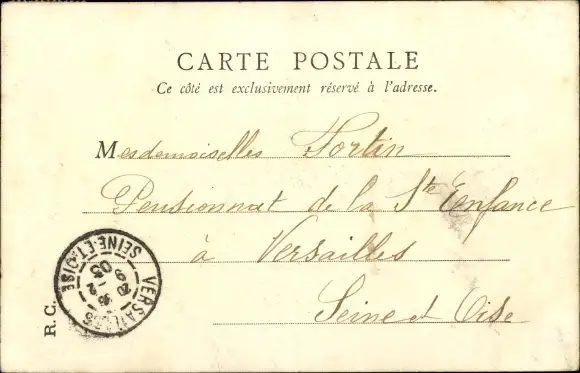 CARTE POSTALE
Ce côté est exclusivement réservé à l'adresse.
Mesdemoiselles Fortin
Pensionnat de la Ste Enfance
à Versailles
Seine et Oise
R. C.
VERSAILLES
SEINE-ET-OISE
03